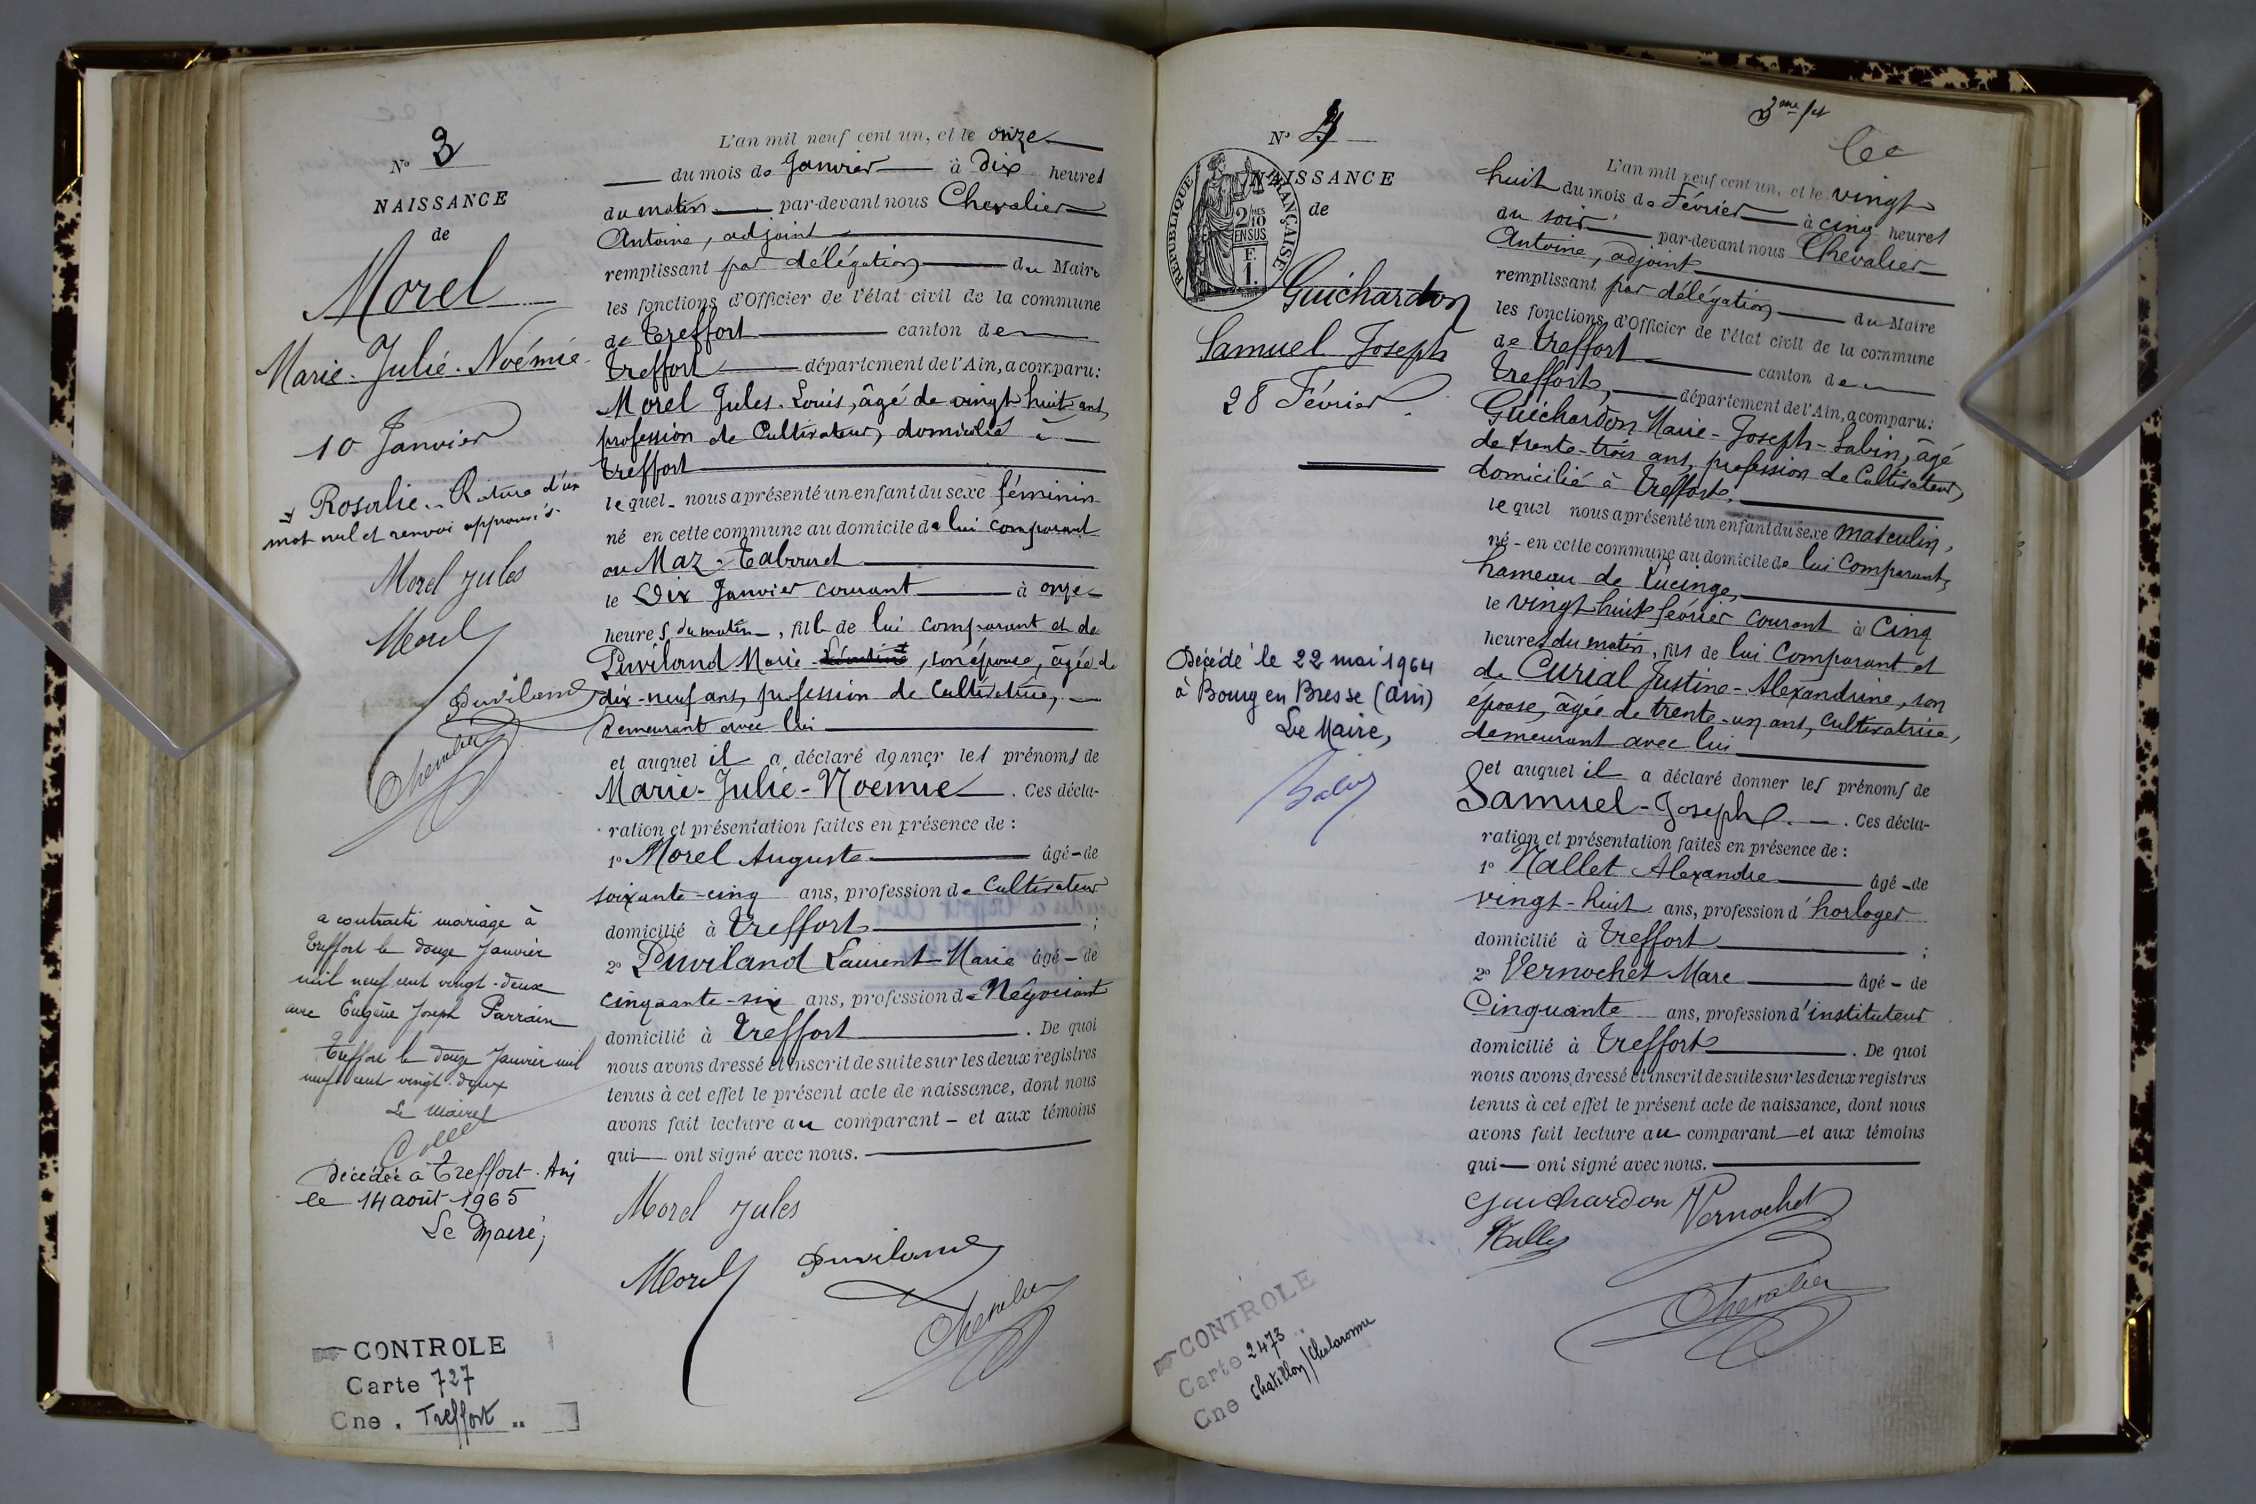 N° 3
NAISSANCE
de
Morel
Marie-Julie-Noémie
10 Janvier
Rosalie. Rature d'un
mot nul et renvoi approuvés.
Morel Jules
Morel
Duviland
Chevalier
a contracté mariage à
Treffort le douze Janvier
mil neuf cent vingt-deux
avec Eugène Joseph Parrain
Treffort le douze Janvier mil
neuf cent vingt-deux
Le Maire
Décédée à Treffort-Ain
le 14 août 1965
Le Maire,
CONTROLE
Carte 727
Cne. Treffort
L'an mil neuf cent un, et le onze
du mois de Janvier à Dix heures
du matin par-devant nous Chevalier
Antoine, adjoint
remplissant par délégation du Maire
les fonctions d'Officier de l'état civil de la commune
de Treffort canton de
Treffort département de l'Ain, a comparu:
Morel Jules-Louis, âgé de vingt-huit ans,
profession de Cultivateur, domicilié à
Treffort
lequel nous a présenté un enfant du sexe féminin
né en cette commune au domicile de lui comparant
au Maz-Tabouret
le Dix Janvier courant à onze
heures du matin, fille de lui comparant et de
Duviland Marie, son épouse, âgée de
dix-neuf ans, profession de Cultivatrice,
demeurant avec lui
et auquel il a déclaré donner les prénoms de
Marie-Julie-Noémie. Ces décla-
ration et présentation faites en présence de :
1° Morel Auguste âgé de
soixante-cinq ans, profession de Cultivateur
domicilié à Treffort ;
2° Duviland Laurent-Marie âgé de
cinquante-six ans, profession de Négociant
domicilié à Treffort. De quoi
nous avons dressé et inscrit de suite sur les deux registres
tenus à cet effet le présent acte de naissance, dont nous
avons fait lecture au comparant et aux témoins
qui ont signé avec nous.
Morel Jules
Morel Duviland
Chevalier
3me ft
N° 4
NAISSANCE
de
RÉPUBLIQUE FRANÇAISE
2/10MES
EN SUS
F.
1.
Guichardon
Samuel Joseph
28 Février.
Décédé le 22 mai 1964
à Bourg en Bresse (Ain)
Le Maire,
CONTROLE
Carte 2473
Cne Chatillon/Chalaronne
L'an mil neuf cent un, et le vingt
huit du mois de Février à cinq heures
du soir par-devant nous Chevalier
Antoine, adjoint
remplissant par délégation du Maire
les fonctions d'Officier de l'état civil de la commune
de Treffort canton de
Treffort, département de l'Ain, a comparu:
Guichardon Marie-Joseph-Sabin, âgé
de trente-trois ans, profession de Cultivateur,
domicilié à Treffort,
lequel nous a présenté un enfant du sexe masculin,
né en cette commune au domicile de lui comparant,
hameau de Lucinge,
le vingt huit février courant à Cinq
heures du matin, fils de lui comparant et
de Curial Justine-Alexandrine, son
épouse, âgée de trente-un ans, cultivatrice,
demeurant avec lui
et auquel il a déclaré donner les prénoms de
Samuel-Joseph. Ces décla-
ration et présentation faites en présence de :
1° Nallet Alexandre âgé de
vingt-huit ans, profession d'horloger
domicilié à Treffort ;
2° Vernochet Marc âgé de
Cinquante ans, profession d'instituteur
domicilié à Treffort. De quoi
nous avons dressé et inscrit de suite sur les deux registres
tenus à cet effet le présent acte de naissance, dont nous
avons fait lecture au comparant et aux témoins
qui ont signé avec nous.
Guichardon Vernochet
Nallet
Chevalier